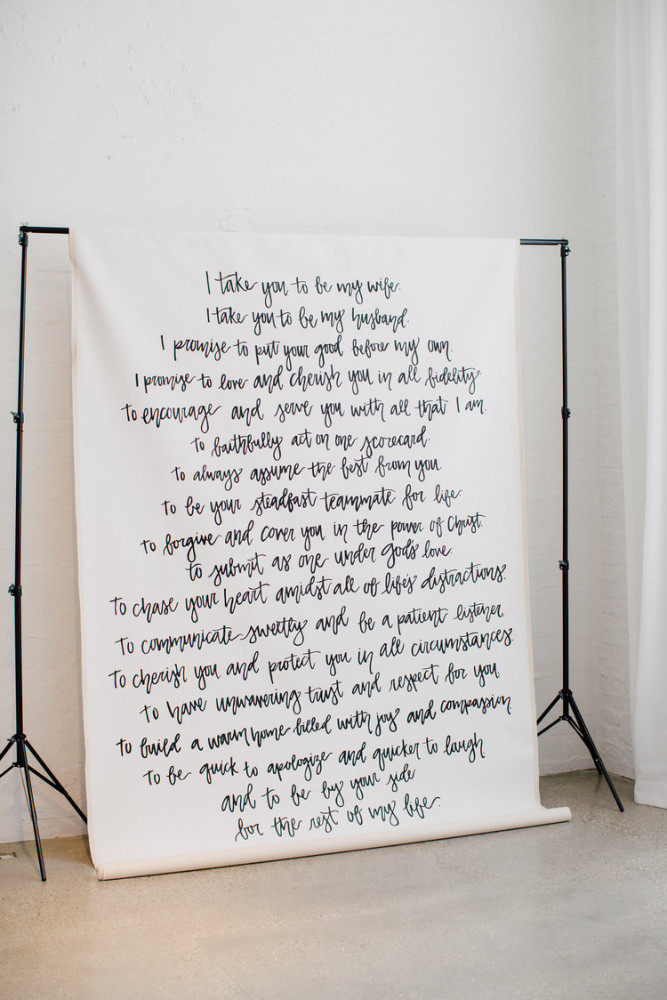 I take you to be my wife.
I take you to be my husband.
I promise to put your good before my own.
I promise to love and cherish you in all fidelity
to encourage and serve you with all that I am.
to faithfully act on one scorecard.
to always assume the best from you.
to be your steadfast teammate for life
to forgive and cover you in the power of Christ.
to submit as one under God's love.
to chase your heart amidst all of life's distractions.
to communicate sweetly and be a patient listener
to cherish you and protect you in all circumstances.
to have unwavering trust and respect for you
to build a warm home filled with joy and compassion
to be quick to apologize and quicker to laugh
and to be by your side
for the rest of my life.